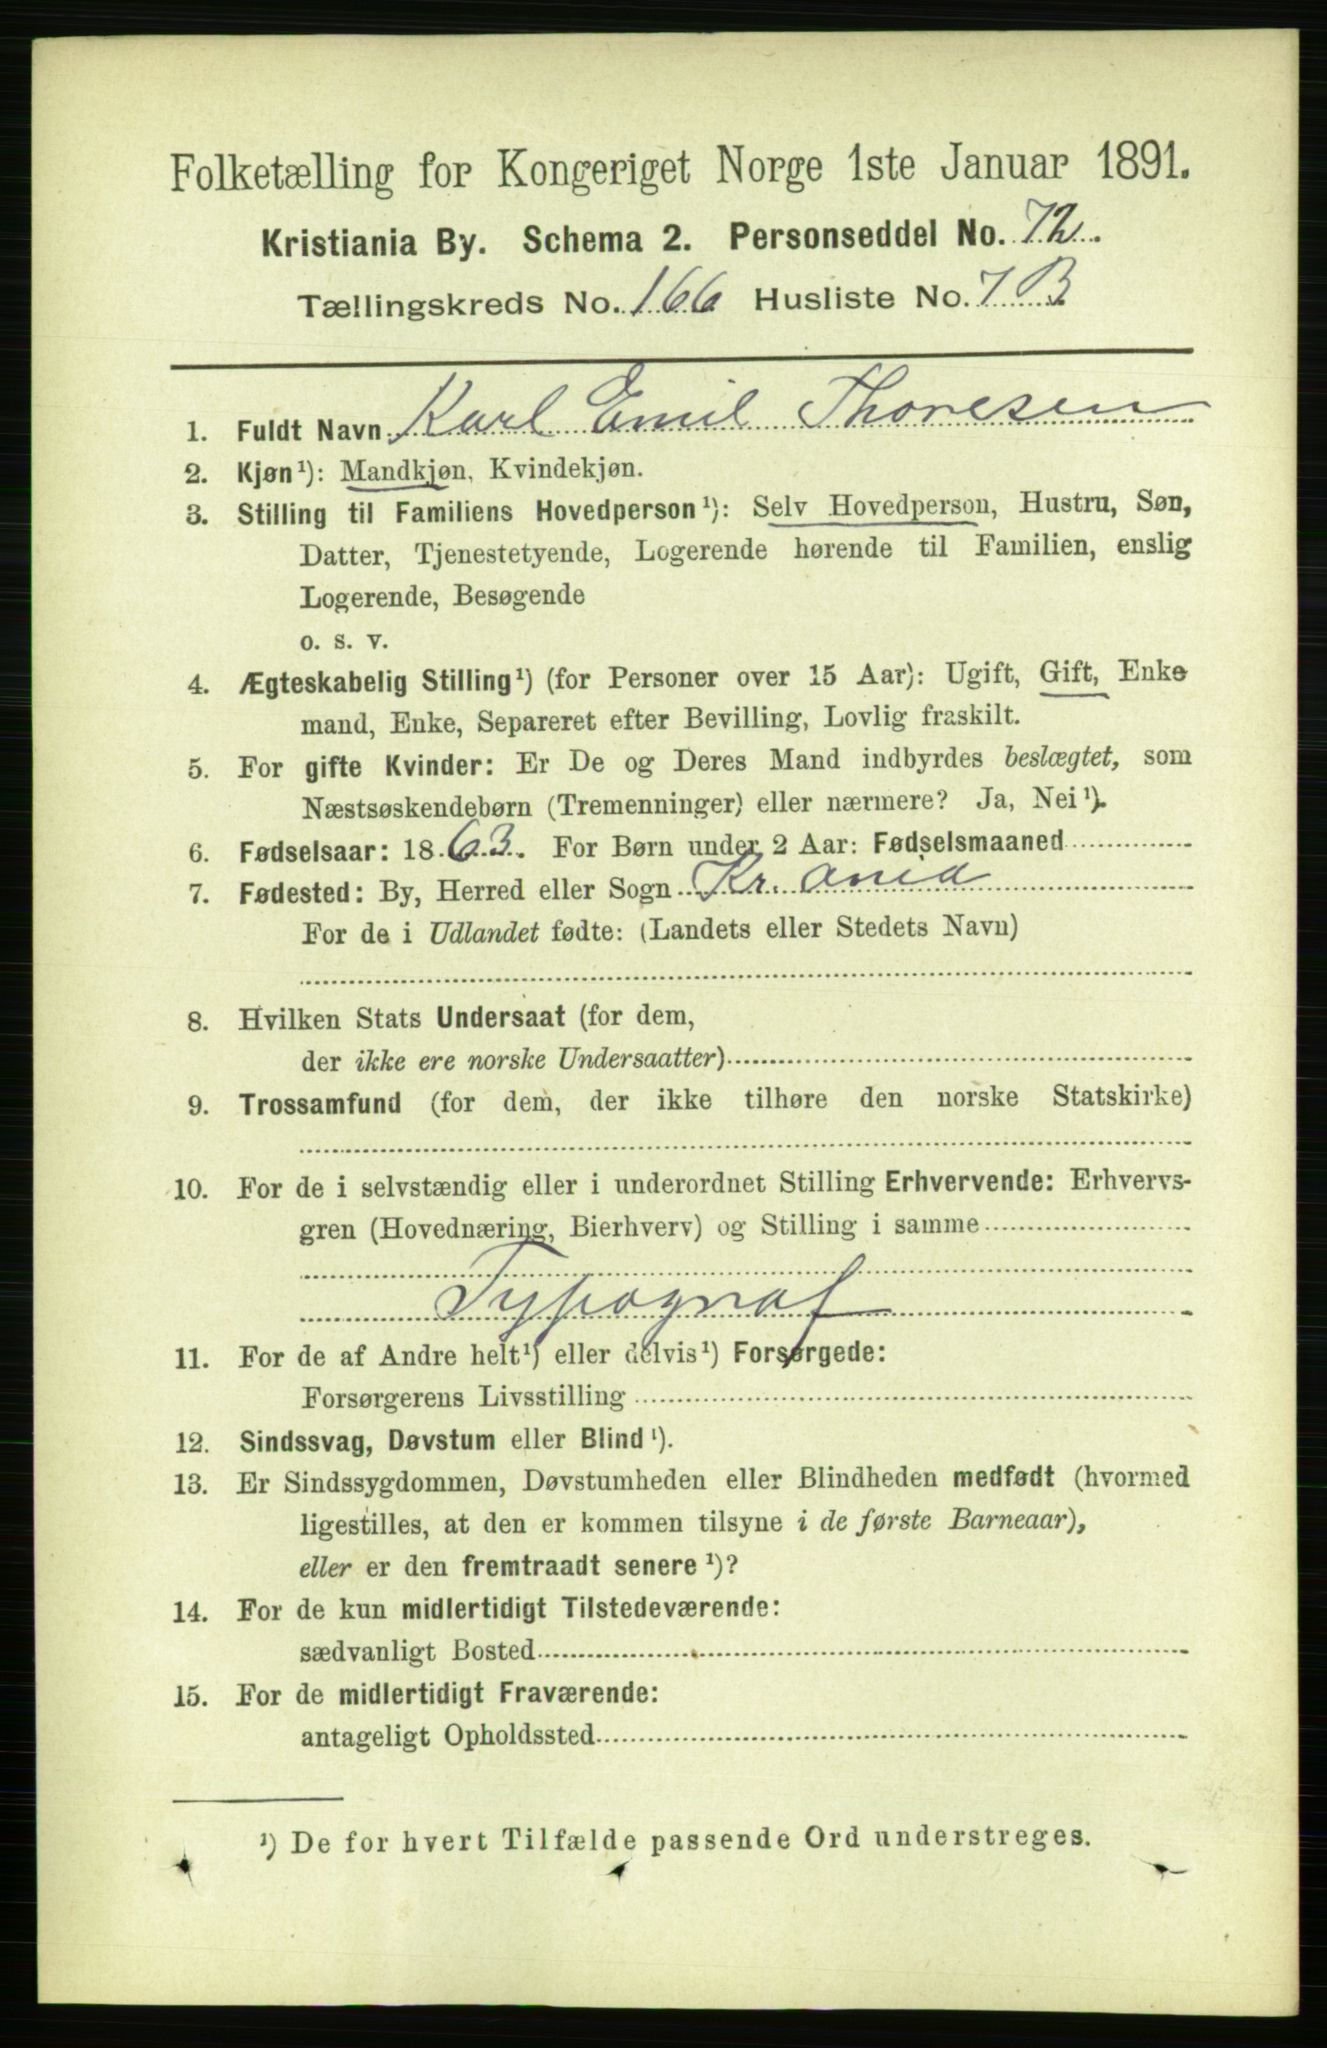 Folketælling for Kongeriget Norge 1ste Januar 1891.
Kristiania By. Schema 2. Personseddel No. 72.
Tællingskreds No. 166 Husliste No. 7 B
1. Fuldt Navn Karl Emil Thoresen
2. Kjøn¹): Mandkjøn, Kvindekjøn.
3. Stilling til Familiens Hovedperson¹): Selv Hovedperson, Hustru, Søn,
Datter, Tjenestetyende, Logerende hørende til Familien, enslig
Logerende, Besøgende
o. s. v.
4. Ægteskabelig Stilling¹) (for Personer over 15 Aar): Ugift, Gift, Enke
mand, Enke, Separeret efter Bevilling, Lovlig fraskilt.
5. For gifte Kvinder: Er De og Deres Mand indbyrdes beslægtet, som
Næstsøskendebørn (Tremenninger) eller nærmere? Ja, Nei¹).
6. Fødselsaar: 1863. For Børn under 2 Aar: Fødselsmaaned
7. Fødested: By, Herred eller Sogn Kr. ania
For de i Udlandet fødte: (Landets eller Stedets Navn)
8. Hvilken Stats Undersaat (for dem,
der ikke ere norske Undersaatter)
9. Trossamfund (for dem, der ikke tilhøre den norske Statskirke)
10. For de i selvstændig eller i underordnet Stilling Erhvervende: Erhvervs-
gren (Hovednæring, Bierhverv) og Stilling i samme
Typograf
11. For de af Andre helt¹) eller delvis¹) Forsørgede:
Forsørgerens Livsstilling
12. Sindssvag, Døvstum eller Blind¹).
13. Er Sindssygdommen, Døvstumheden eller Blindheden medfødt (hvormed
ligestilles, at den er kommen tilsyne i de første Barneaar),
eller er den fremtraadt senere¹)?
14. For de kun midlertidigt Tilstedeværende:
sædvanligt Bosted
15. For de midlertidigt Fraværende:
antageligt Opholdssted
¹) De for hvert Tilfælde passende Ord understreges.